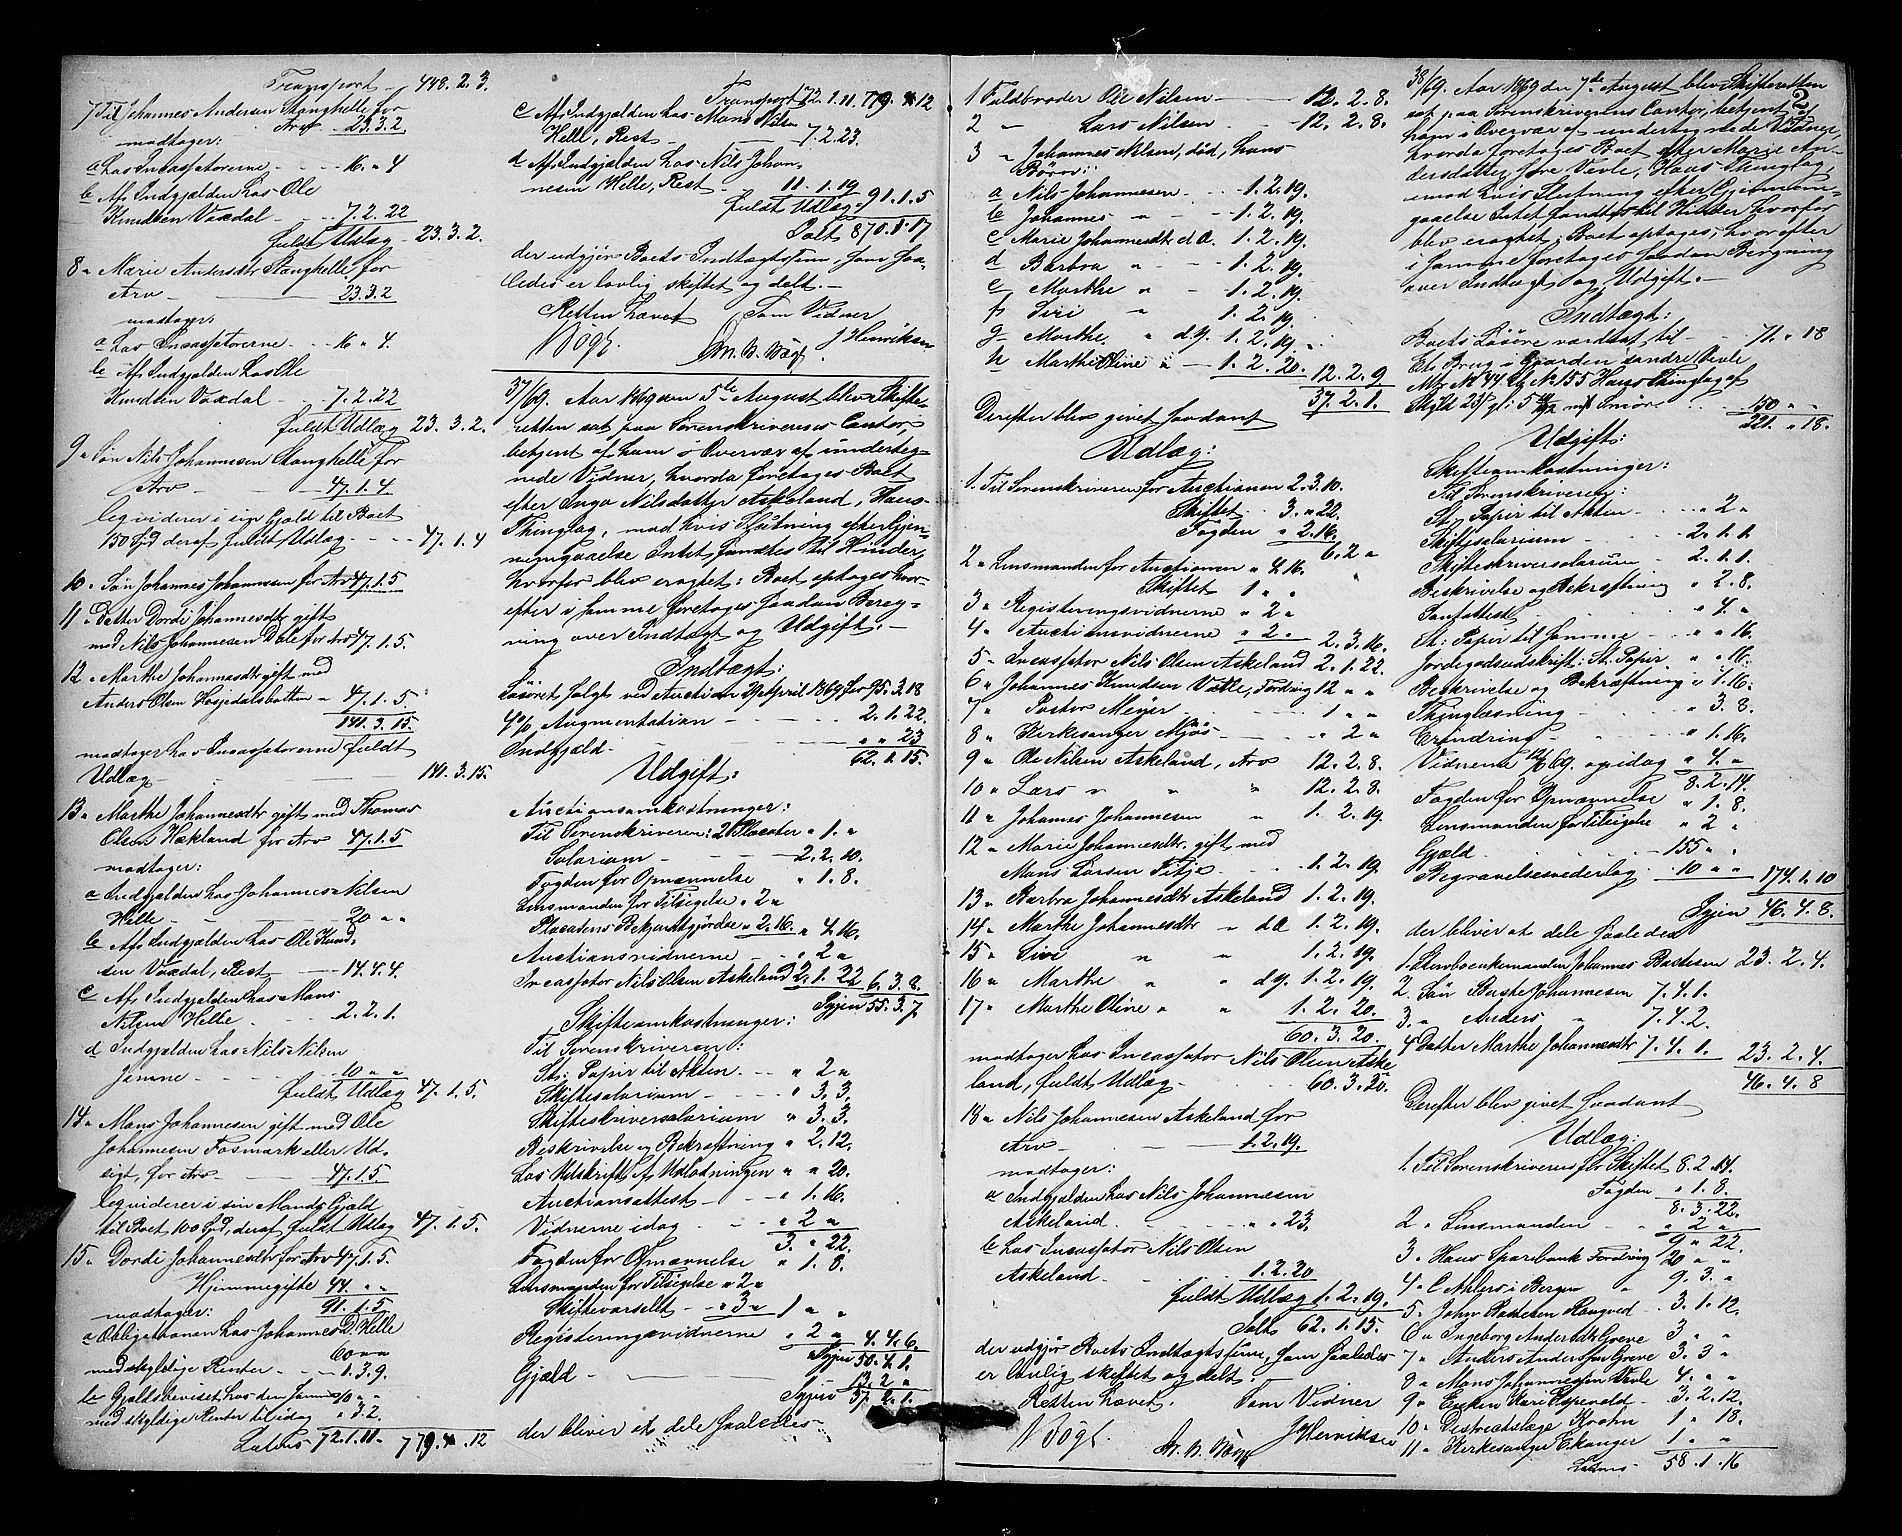 Transport 448. 2. 3.
7 Til Johannes Andersen Stanghelle for
Arv 23.3.2
modtager:
a hos Incassatorerne 16 " 4
b Af Indgjælden hos Ole
Knudsen Vaxdal 7. 2. 22
fuldt Udlæg 23. 3. 2.
8 " Marie Andersdtr Stanghelle for
Arv 23.3.2
modtager:
a hos Incassatorerne 16 " 4.
b Af Indgjælden hos Ole
Knudsen Vaxdal 7. 2. 22
fuldt Udlæg 23. 3. 2.
9 " Søn Nils Johannesen Stanghelle for
Arv 47. 1. 4.
leqviderer i sin Gjæld til Boet
150 Spd deraf fuldt Udlæg 47. 1. 4
10 " Søn Johannes Johannesen for Arv 47. 1. 5
11 " Datter Dordi Johannesdtr gift
med Nils Johannesen Dale for Arv 47. 1. 5.
12 " Marthe Johannesdtr gift med
Anders Olsen Hesjedalsbotten 47. 1. 5
141. 3. 15.
modtager hos Incassatorerne fuldt
Udlæg 141. 3. 15.
13 " Marthe Johannesdtr gift med Thomas
Olsen Hækland for Arv 47. 1. 5
modtager:
a Indgjælden hos Johannes Nilsen
Helle 20 " "
b Af Indgjælden hos Ole Knud-
sen Vaxdal, Rest 14. 4. 4.
c Af Indgjælden hos Mons
Nilsen Helle 2. 2. 1.
d Indgjælden hos Nils Nilsen
Jimne 10 " "
fuldt Udlæg 47. 1. 5.
14 " Mons Johannesen gift med Ole
Johannesen Fosmark eller Ud-
sigt, for Arv 47. 1. 5
leqviderer i sin Mands Gjæld
til Boet 100 Spd, deraf fuldt Udlæg 47. 1. 5.
15 " Dordi Johannesdtr for Arv 47. 1. 5.
Hjemmegifte 44. " "
modtager: 91. 1. 5
a Obligationen hos Johannes D. Helle
60 " "
med skyldige Renter 1. 3. 9.
b Gjældsbeviset hos den samme 10 " "
med skyldige Renter til idag " 3. 2.
Lateris 72. 1. 11. 779. 4. 12
Transport 72. 1. 11. 779. 4. 12
c Af Indgjælden hos Mons Nilsen
Helle, Rest 7. 2. 23.
d Af Indgjælden hos Nils Johan-
nesen Helle, Rest 11. 1. 19
fuldt Udlæg 91. 1. 5
Salt 870. 1. 17
der udgjør Boets Indtægtssum, som saa-
ledes er lovlig skiftet og delt.
Retten hævet Som Vidner
Vogt. M. B. Bøgh. J. Henriksen
37/69. Aar 1869 den 5te August blev Skifte-
retten sat paa Sorenskriverens Contor
betjent af ham i Overvær af underteg-
nede Vidner, hvorda foretages Boet
efter Inga Nilsdatter Askeland, Haus
Thinglag, mod hvis Slutning efter Gjen-
nemgaaelse Intet fandtes til Hinder,
hvorfor blev eragtet: Boet optages hvor-
efter i samme foretages saadan Bereg-
ning over Indtægt og Udgift.
Indtægt:
Løsøret solgt ved Auction 29 April 1869 for 95. 3. 18
4% Augmentation 2. 1. 22.
Indgjæld " " 23
62. 1. 15.
Udgift:
Auctionsomkostninger:
Til Sorenskriveren: 2 Placater " 1. "
Salarium 2. 2. 10.
Fogden for Opnævnelse " 1. 8.
Lensmanden for Tilsigelse " 2 "
Placatens Bekjendtgjørelse " 2. 16. " 4. 16.
Auctionsvidnerne " 2 "
Incassator Nils Olsen Askeland 2. 1. 22 6. 3. 8.
Igjen 55. 3. 7
Skifteomkostninger:
Til Sorenskriveren:
St: Papir til Akten " 2 "
Skiftesalarium " 3. 3.
Skifteskriversalarium " 3. 3.
Beskrivelse og Bekræftning " 2. 12.
Løs Udskrift af Udlodningen " " 20.
Auctionsattest " 1. 16.
Vidnerne idag " 2 "
3. " 22.
Fogden for Opnævnelse " 1. 8.
Lensmanden for Tilsigelse " 2 "
Skiftevarselet " 3 " 1 " "
Registeringsvidnerne " 2 " 4. 4. 6.
Igjen 50. 4. 1.
Gjæld 13. 2 "
Igjen 37. 2. 1.
der bliver at dele saaledes
1 Fuldbroder Ole Nilsen 12. 2. 8.
2 " Lars Nilsen 12. 2. 8.
3 " Johannes Nilsen, død, hans
Børn:
a Nils Johannesen 1. 2. 19.
b Johannes " 1. 2. 19.
c Marie Johannesdtr d. A. 1. 2. 19.
d Barbra " 1. 2. 19.
e Marthe " 1. 2. 19.
f Siri " 1. 2. 19.
g Marthe " d. y. 1. 2. 19.
h Marthe Oline " 1. 2. 20. 12. 2. 9
37. 2. 1.
Derefter blev givet saadant
Udlæg:
1. Til Sorenskriveren for Auctionen 2. 3. 10.
Skiftet 3. " 22.
Fogden " 2. 16.
6. 2 "
2 " Lensmanden for Auctionen " 4. 16.
Skiftet 1 " "
3 " Registeringsvidnerne " 2 "
4 " Auctionsvidnerne " 2 " 2. 3. 16.
5 " Incassator Nils Olsen Askeland 2. 1. 22.
6 " Johannes Knudsen Vætle, Fordring 12 " "
7 " Pastor Meyer 1 " "
8 " Kirkesanger Mjøs " 2 "
9 " Ole Nilsen Askeland, Arv 12. 2. 8.
10 " Lars " " " 12. 2. 8.
11 " Johannes Johannesen " 1. 2. 19.
12 " Marie Johannesdtr. gift med
Mons Larsen Titje 1. 2. 19.
13 " Barbra Johannesdtr Askeland 1. 2. 19.
14 " Marthe Johannesdtr " d. A 1. 2. 19.
15 " Sivi " " 1. 2. 19.
16 " Marthe " " d. y. 1. 2. 19.
17 " Marthe Oline " " 1. 2. 20.
60. 3. 20.
modtager hos Incassator Nils Olsen Aske-
land, fuldt Udlæg 60. 3. 20.
18 " Nils Johannesen Askeland for
Arv 1. 2. 19.
modtager:
a Indgjælden hos Nils Johannesen
Askeland " " 23.
b hos Incassator Nils Olsen
Askeland 1. 2. 20
fuldt Udlæg 1. 2. 19.
Salt 62. 1. 15.
der udgjør Boets Indtægtssum, som saaledes
er lovlig skiftet og delt.
Retten hævet. Som Vidner
Vogt. M. B. Bøgh J Henriksen
2
38/69. Aar 1869 den 7de August blev Skifteretten
sat paa Sorenskriverens Contor, betjent af
ham i Overvær af undertegnede Vidner,
hvorda foretages Boet efter Marie An-
dersdatter søre Vevle, Haus Thinglag,
mod hvis Slutning efter Gjennem-
gaaelse Intet fandtes til Hinder hvorfor
blev eragtet: Boet optages, hvorefter
i samme foretages saadan Beregning
over Indtægt og Udgift.
Indtægt:
Boets Løsøre vurderet til 71. " 18
Et Brug i Gaarden søndre Vevle
Mtr No 44 Lb No 155 Haus Thinglag af
Skyld 150 " "
221. " 18.
Udgift:
Skifteomkostninger:
Til Sorenskriveren:
St. Papir til Akten " 2 "
Skiftesalarium 2. 1. 1
Skifteskriversalarium 2. 1. 1.
Beskrivelse og Bekræftning " 2. 8.
Panteattest " 4. "
St: Papir til samme " " 16.
Jordegodsudskrift: St. Papir " " 16.
Beskrivelse og Bekræftning " 1. 16.
Thinglæsning " 3. 8.
Erindring " 1. 16.
Vidnerne 12/6 69. og idag " 4. "
8. 2. 14.
Fogden for Opnævnelse " 1. 8.
Lensmanden for Tilsigelse " 2 "
Gjæld 155 " "
Begravelsesvederlag 10 " " 174. 1. 10
Igjen 46. 4. 8.
der bliver at dele saaledes
1. Stervboenkemanden Johannes Bastesen 23. 2. 4.
2. Søn Baste Johannesen 7. 4. 1.
3. " Anders " 7. 4. 2.
4 Datter Marthe Johannesdtr 7. 4. 1. 23. 2. 4.
46. 4. 8
Derefter blev givet saadant
Udlæg:
1. Til Sorenskriveren for Skiftet 8. 2. 14.
Fogden " 1. 8.
8. 3. 22.
2 " Lensmanden " 2 "
9 " 22.
3 " Haus Sparebank Fordring 20 " "
4 " C Ahlers i Bergen " 9. 3. "
5 " Johs Bastesen Rongved 3. 1. 12.
6 " Ingeborg Andersdtr Greve 3 " "
7 " Anders Anderssen Greve 3. 3 "
8 " Mons Johannesen Vevle 4. " "
9 " Enken Kari Espevold 3. 2. 12.
10 " Districtslæge Krohn 1 " 18.
11 " Kirkesanger Ekanger 1 " "
Lateris 58. 1. 16